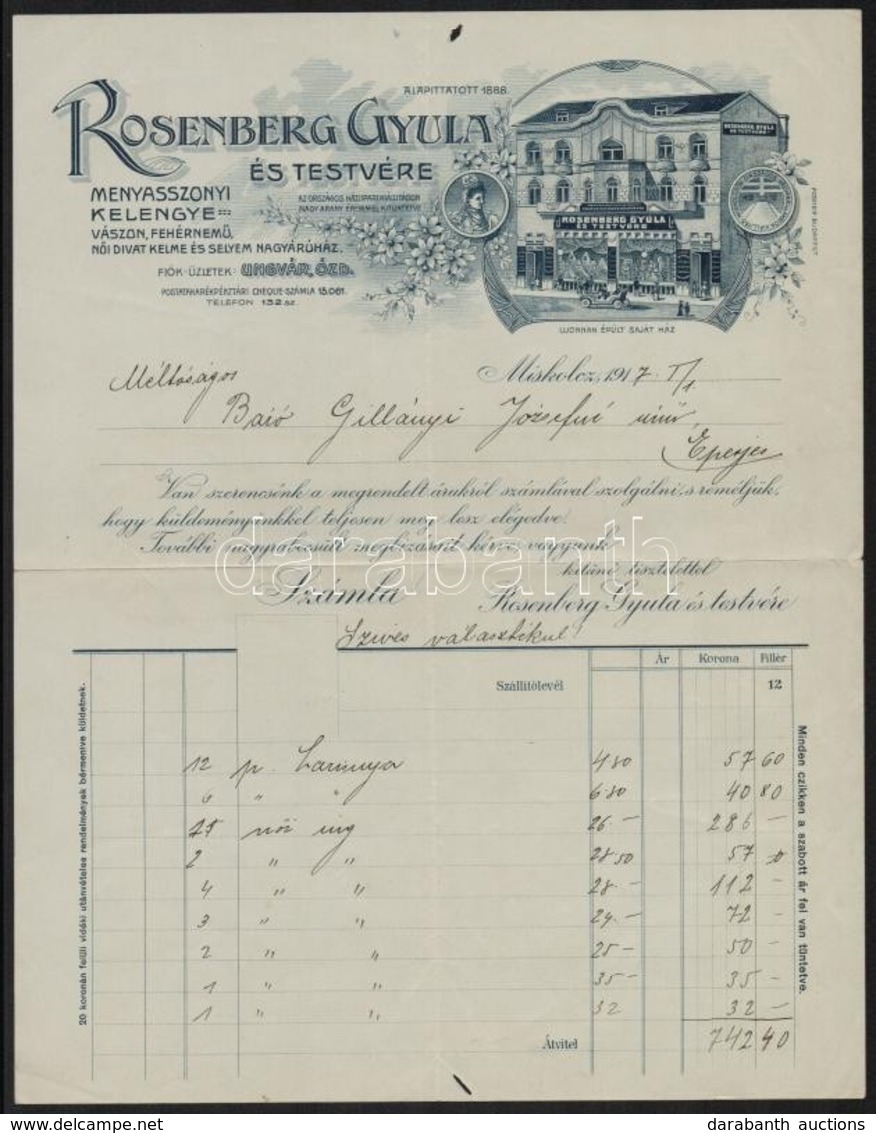 ALAPITTATOTT 1886.
ROSENBERG GYULA
ÉS TESTVÉRE
ROSENBERG GYULA
ÉS TESTVÉRE
MENYASSZONYI
KELENGYE
VÁSZON, FEHÉRNEMŰ,
NŐI DIVAT KELME ÉS SELYEM NAGYÁRÚHÁZ.
AZ ORSZÁGOS HÁZIIPARI KIÁLLITÁSON
NAGY ARANY ÉREMMEL KITÜNTETVE
ROSENBERG GYULA
ÉS TESTVÉRE
FIÓK-ÜZLETEK: UNGVÁR, ÓZD.
POSTATAKARÉKPÉNZTÁRI CHEQUE-SZÁMLA 15.061.
TELEFON 132 SZ.
UJONNAN ÉPÜLT SAJÁT HÁZ
Miskolcz, 1917. I/1
Méltóságos
Gillányi Józsefné
Eperjes
Van szerencsénk a megrendelt árukról számlával szolgálni, s reméljük,
hogy küldeményünkkel teljesen meg lesz elégedve.
További nagybecsült megbizásait kérve, vagyunk
kitünő tisztelettel
Számla Rosenberg Gyula és testvére
darabanth
Szives választékul!
Ár Korona Fillér
Szállitólevél 12
12 p. 4 80 57 60
6 " " 6.80 40 80
női ing 26 — 286 —
2 " " 28 50 57
4 " " 28 — 112 —
3 " " 24 — 72 —
2 " " 25 — 50 —
1 " " 35 — 35 —
1 " " 32 32 —
Átvitel 742 40
20 koronán felüli vidéki utánvételes rendelmények bérmentve küldetnek.
Minden czikken a szabott ár fel van tüntetve.
darabanth auctions